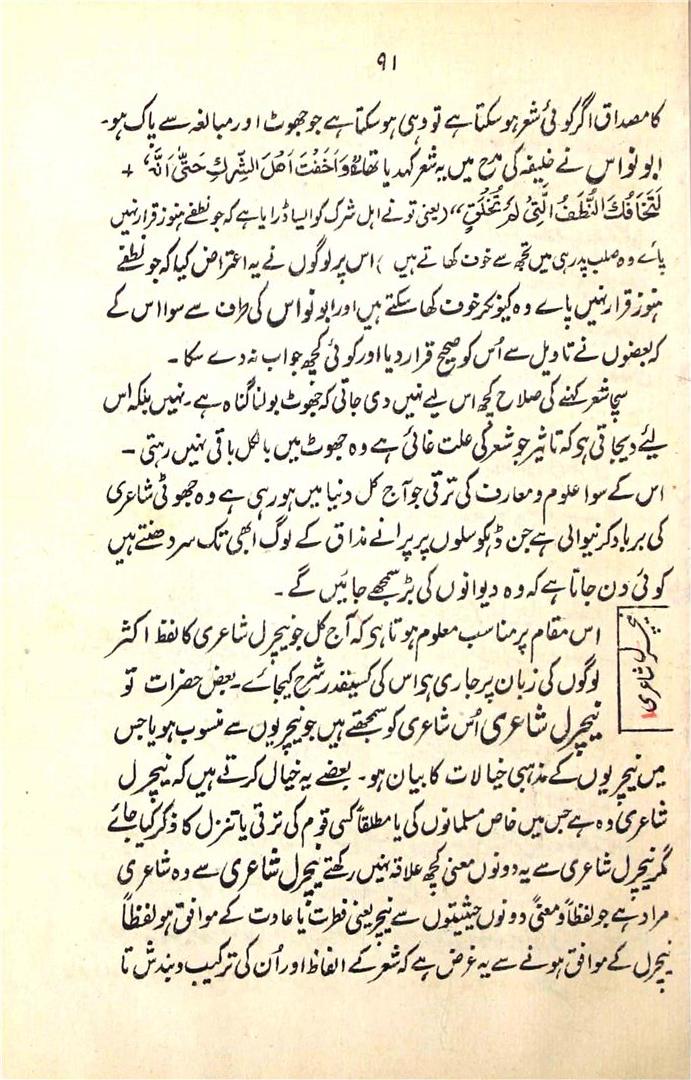 ۹۱
کا مصداق اگر کوئی شعر ہو سکتا ہے تو وہی ہو سکتا ہے جو جھوٹ اور مبالغہ سے پاک ہو۔
ابو نواس نے خلیفہ کی مدح میں یہ شعر کہدیا تھا "وَاَخَفْتَ اَهْلَ الشِّرْكِ حَتّٰى اَنَّهٗ +
لَتَخَافُكَ النُّطَفُ الَّتِیْ لَمْ تُخْلَقٖ" (یعنی تو نے اہل شرک کو ایسا ڈرایا ہے کہ جو نطفے ہنوز قرار نہیں
پائے وہ صلب پدر ہی میں تجھ سے خوف کھاتے ہیں) اس پر لوگوں نے یہ اعتراض کیا کہ جو نطفے
ہنوز قرار نہیں پائے وہ کیونکر خوف کھا سکتے ہیں اور ابو نواس کی طرف سے سوا اس کے
کہ بعضوں نے تاویل سے اُس کو صحیح قرار دیا اور کوئی کچھ جواب نہ دے سکا۔
سچا شعر کہنے کی صلاح کچھ اس لیے نہیں دی جاتی کہ جھوٹ بولنا گناہ ہے۔ نہیں بلکہ اس
لیئے دیجاتی ہو کہ تاثیر جو شعر کی علت غائی ہے وہ جھوٹ میں بالکل باقی نہیں رہتی۔
اس کے سوا علوم و معارف کی ترقی جو آج کل دنیا میں ہو رہی ہے وہ جھوٹی شاعری
کی برباد کرنیوالی ہے جن ڈہکوسلوں پر پرانے مذاق کے لوگ ابھی تک سر دھنتے ہیں
کوئی دن جاتا ہے کہ وہ دیوانوں کی بڑ سمجھے جائیں گے۔
نیچرل شاعری
اس مقام پر مناسب معلوم ہوتا ہو کہ آج کل جو نیچرل شاعری کا لفظ اکثر
لوگوں کی زبان پر جاری ہو اس کی کسیقدر شرح کیجائے۔ بعض حضرات تو
نیچرل شاعری اُس شاعری کو سمجھتے ہیں جو نیچریوں سے منسوب ہو یا جس
میں نیچریوں کے مذہبی خیالات کا بیان ہو۔ بعضے یہ خیال کرتے ہیں کہ نیچرل
شاعری وہ ہے جس میں خاص مسلمانوں کی یا مطلقاً کسی قوم کی ترقی یا تنزل کا ذکر کیا جائے
مگر نیچرل شاعری سے یہ دونوں معنی کچھ علاقہ نہیں رکھتے نیچرل شاعری سے وہ شاعری
مراد ہے جو لفظاً و معنیً دونوں حیثیتوں سے نیچر یعنی فطرت یا عادت کے موافق ہو لفظاً
نیچرل کے موافق ہونے سے یہ غرض ہے کہ شعر کے الفاظ اور اُن کی ترکیب و بندش تا